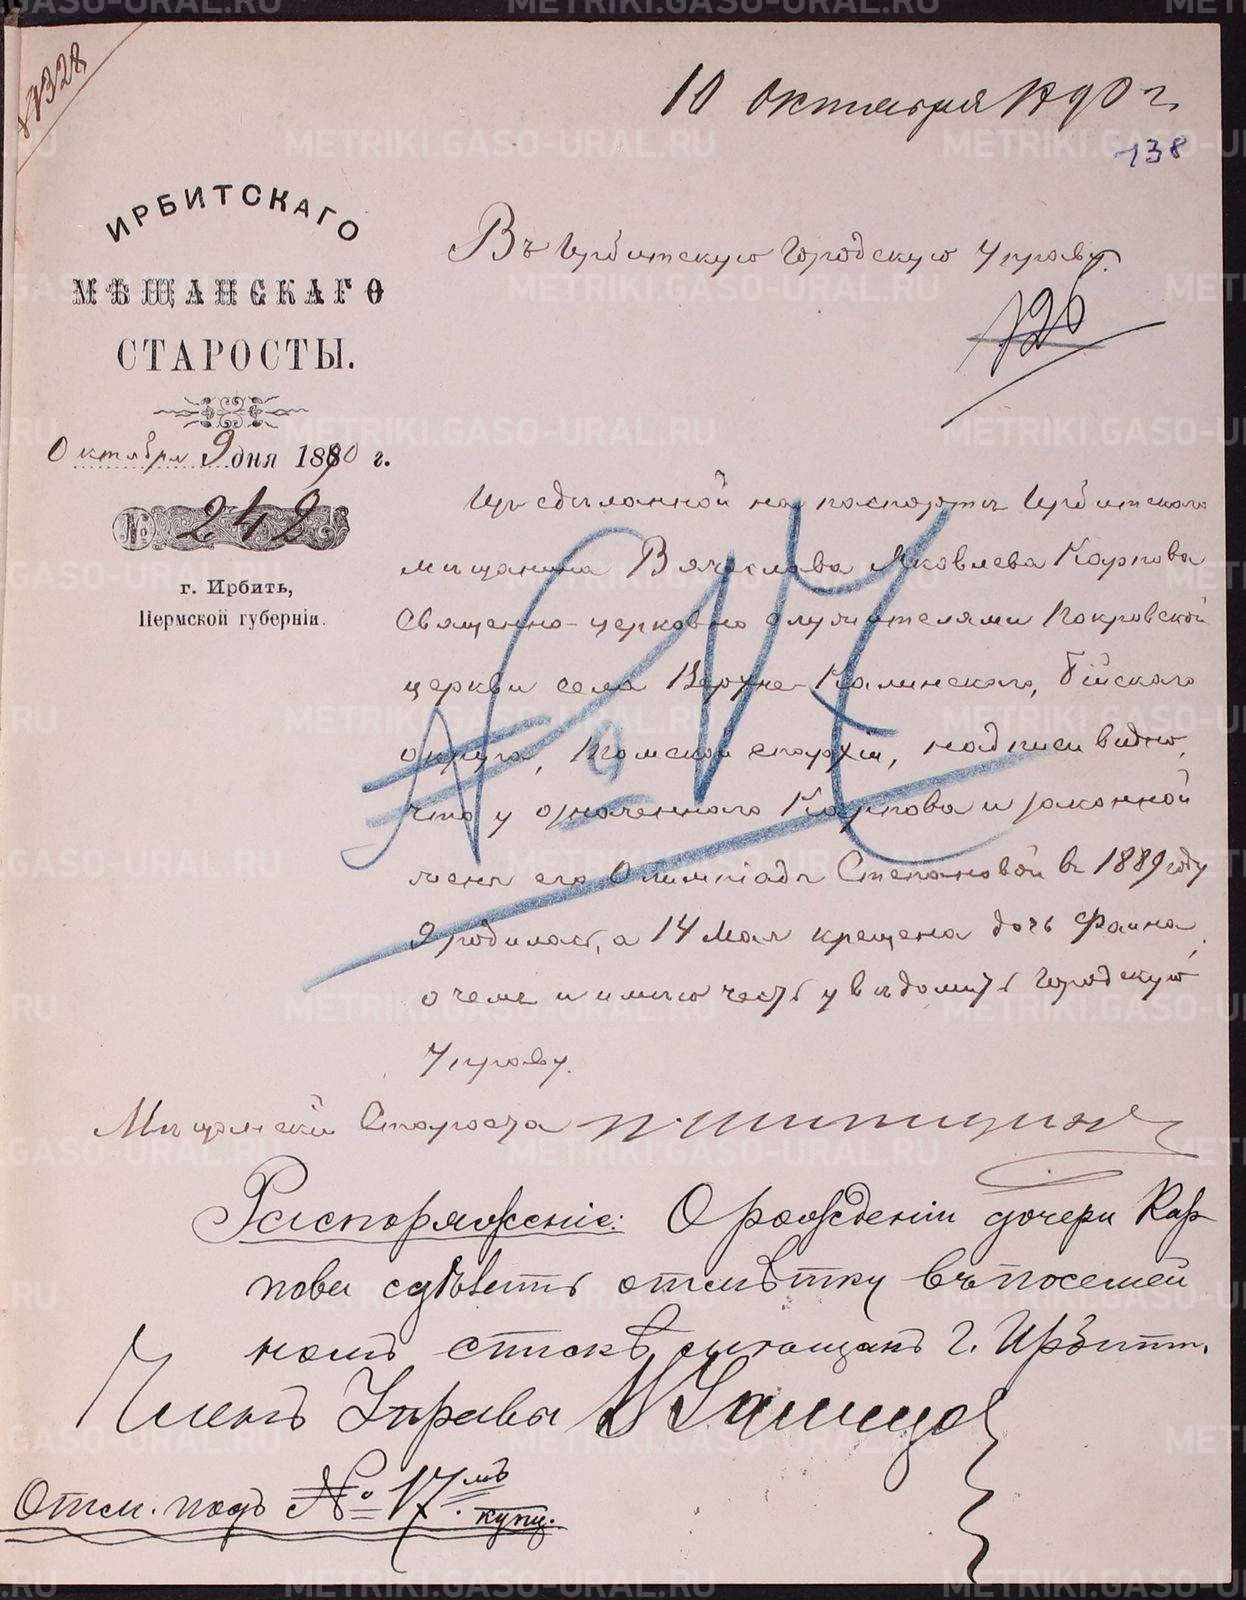 10 Октября 1890 г.
138
ИРБИТСКАГО
МѢЩАНСКАГО
СТАРОСТЫ.
Въ Ирбитскую Городскую Управу.
126
Октября 9 дня 1890 г.
№ 242
г. Ирбить,
Пермской губерніи.
Изъ сдѣланной на паспортѣ Ирбитскаго
мѣщанина Вячеслава Яковлева Карпова
Священно-церковно служителями Покровской
церкви села Верхне-Калинскаго, Бійскаго
округа, Томской епархіи, надписи видно,
что у означеннаго Карпова и законной
жены его Олимпіады Степановой въ 1889 году
9 родилась, а 14 Мая крещена дочь Фаина,
о чемъ и имѣю честь увѣдомить Городскую
Управу.
Мѣщанскій Староста
Распоряженіе: О рожденіи дочери Кар-
пова сдѣлать отмѣтку въ посемей
номъ спискѣ мѣщанъ г. Ирбити.
Членъ Управы
Отм. подъ № 17 мъ
купц.
№ 17
METRIKI.GASO-URAL.RU